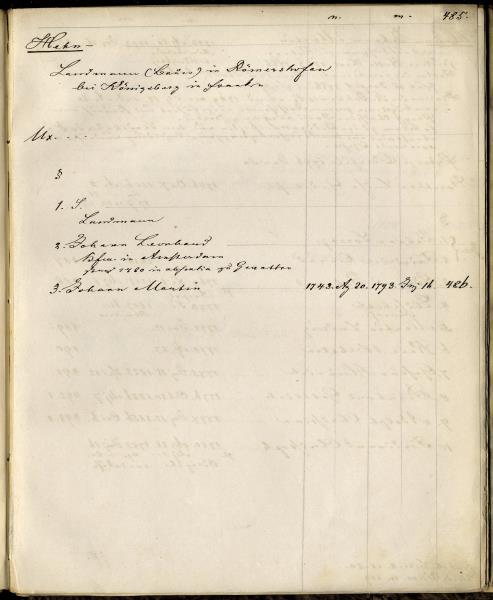 n. m. 485.
Hahn
Landmann (Bauer) in Römershofen
bei Königsberg in Franken
Ux. . . .
3
1. S.
Landmann
2. Johann Leonhard
in Amsterdam
1780 in absentia zu Gevatter
3. Johann Martin 1743. Ag 20. 1793. 16 486.